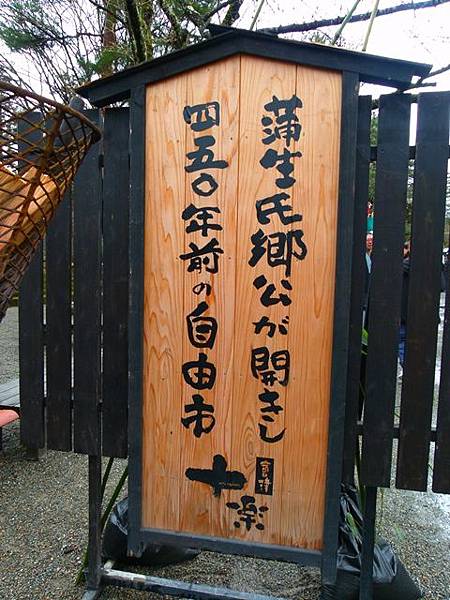 蒲生氏郷公が開きし
四五〇年前の自由市
會津
十楽